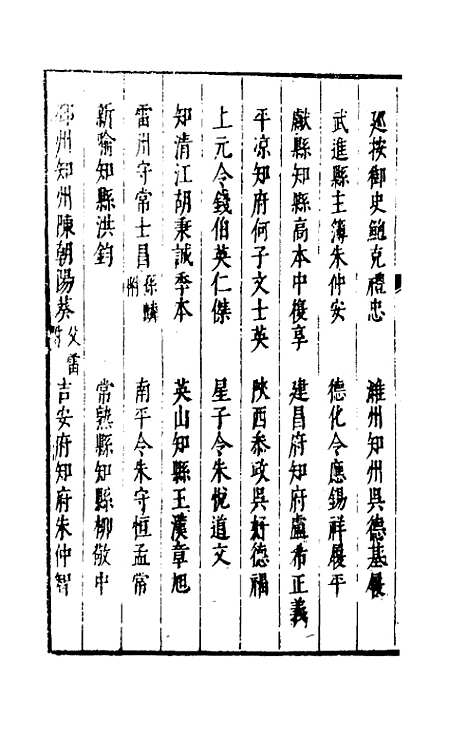 廵按御史鮑克禮忠　濰州知州吳德基履
武進縣主簿朱仲安　德化令應錫祥履平
獻縣知縣高本中復享　建昌府知府盧希正義
平凉知府何子文士英　陝西叅政吳好德福
上元令錢伯英仁傑　星子令朱悅道文
知清江胡秉誠季本　英山知縣王漢章旭
雷州守常士昌孫麟附　南平令朱守恒孟常
新喻知縣洪鈞　常熟縣知縣柳敬中
州知州陳朝陽葵父雷附　吉安府知府朱仲智